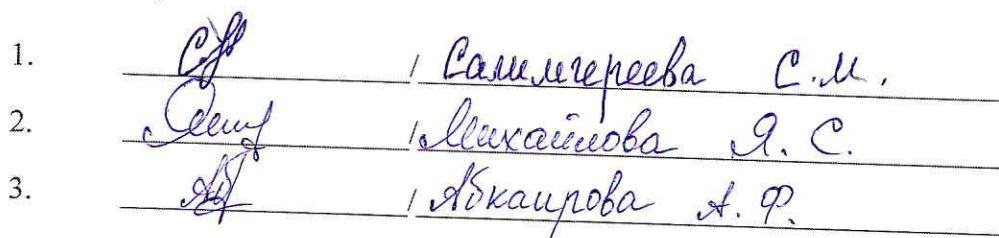 1. / Салимгереева С.М.
2. / Михайлова Я. С.
3. / Абкаирова А. Ф.